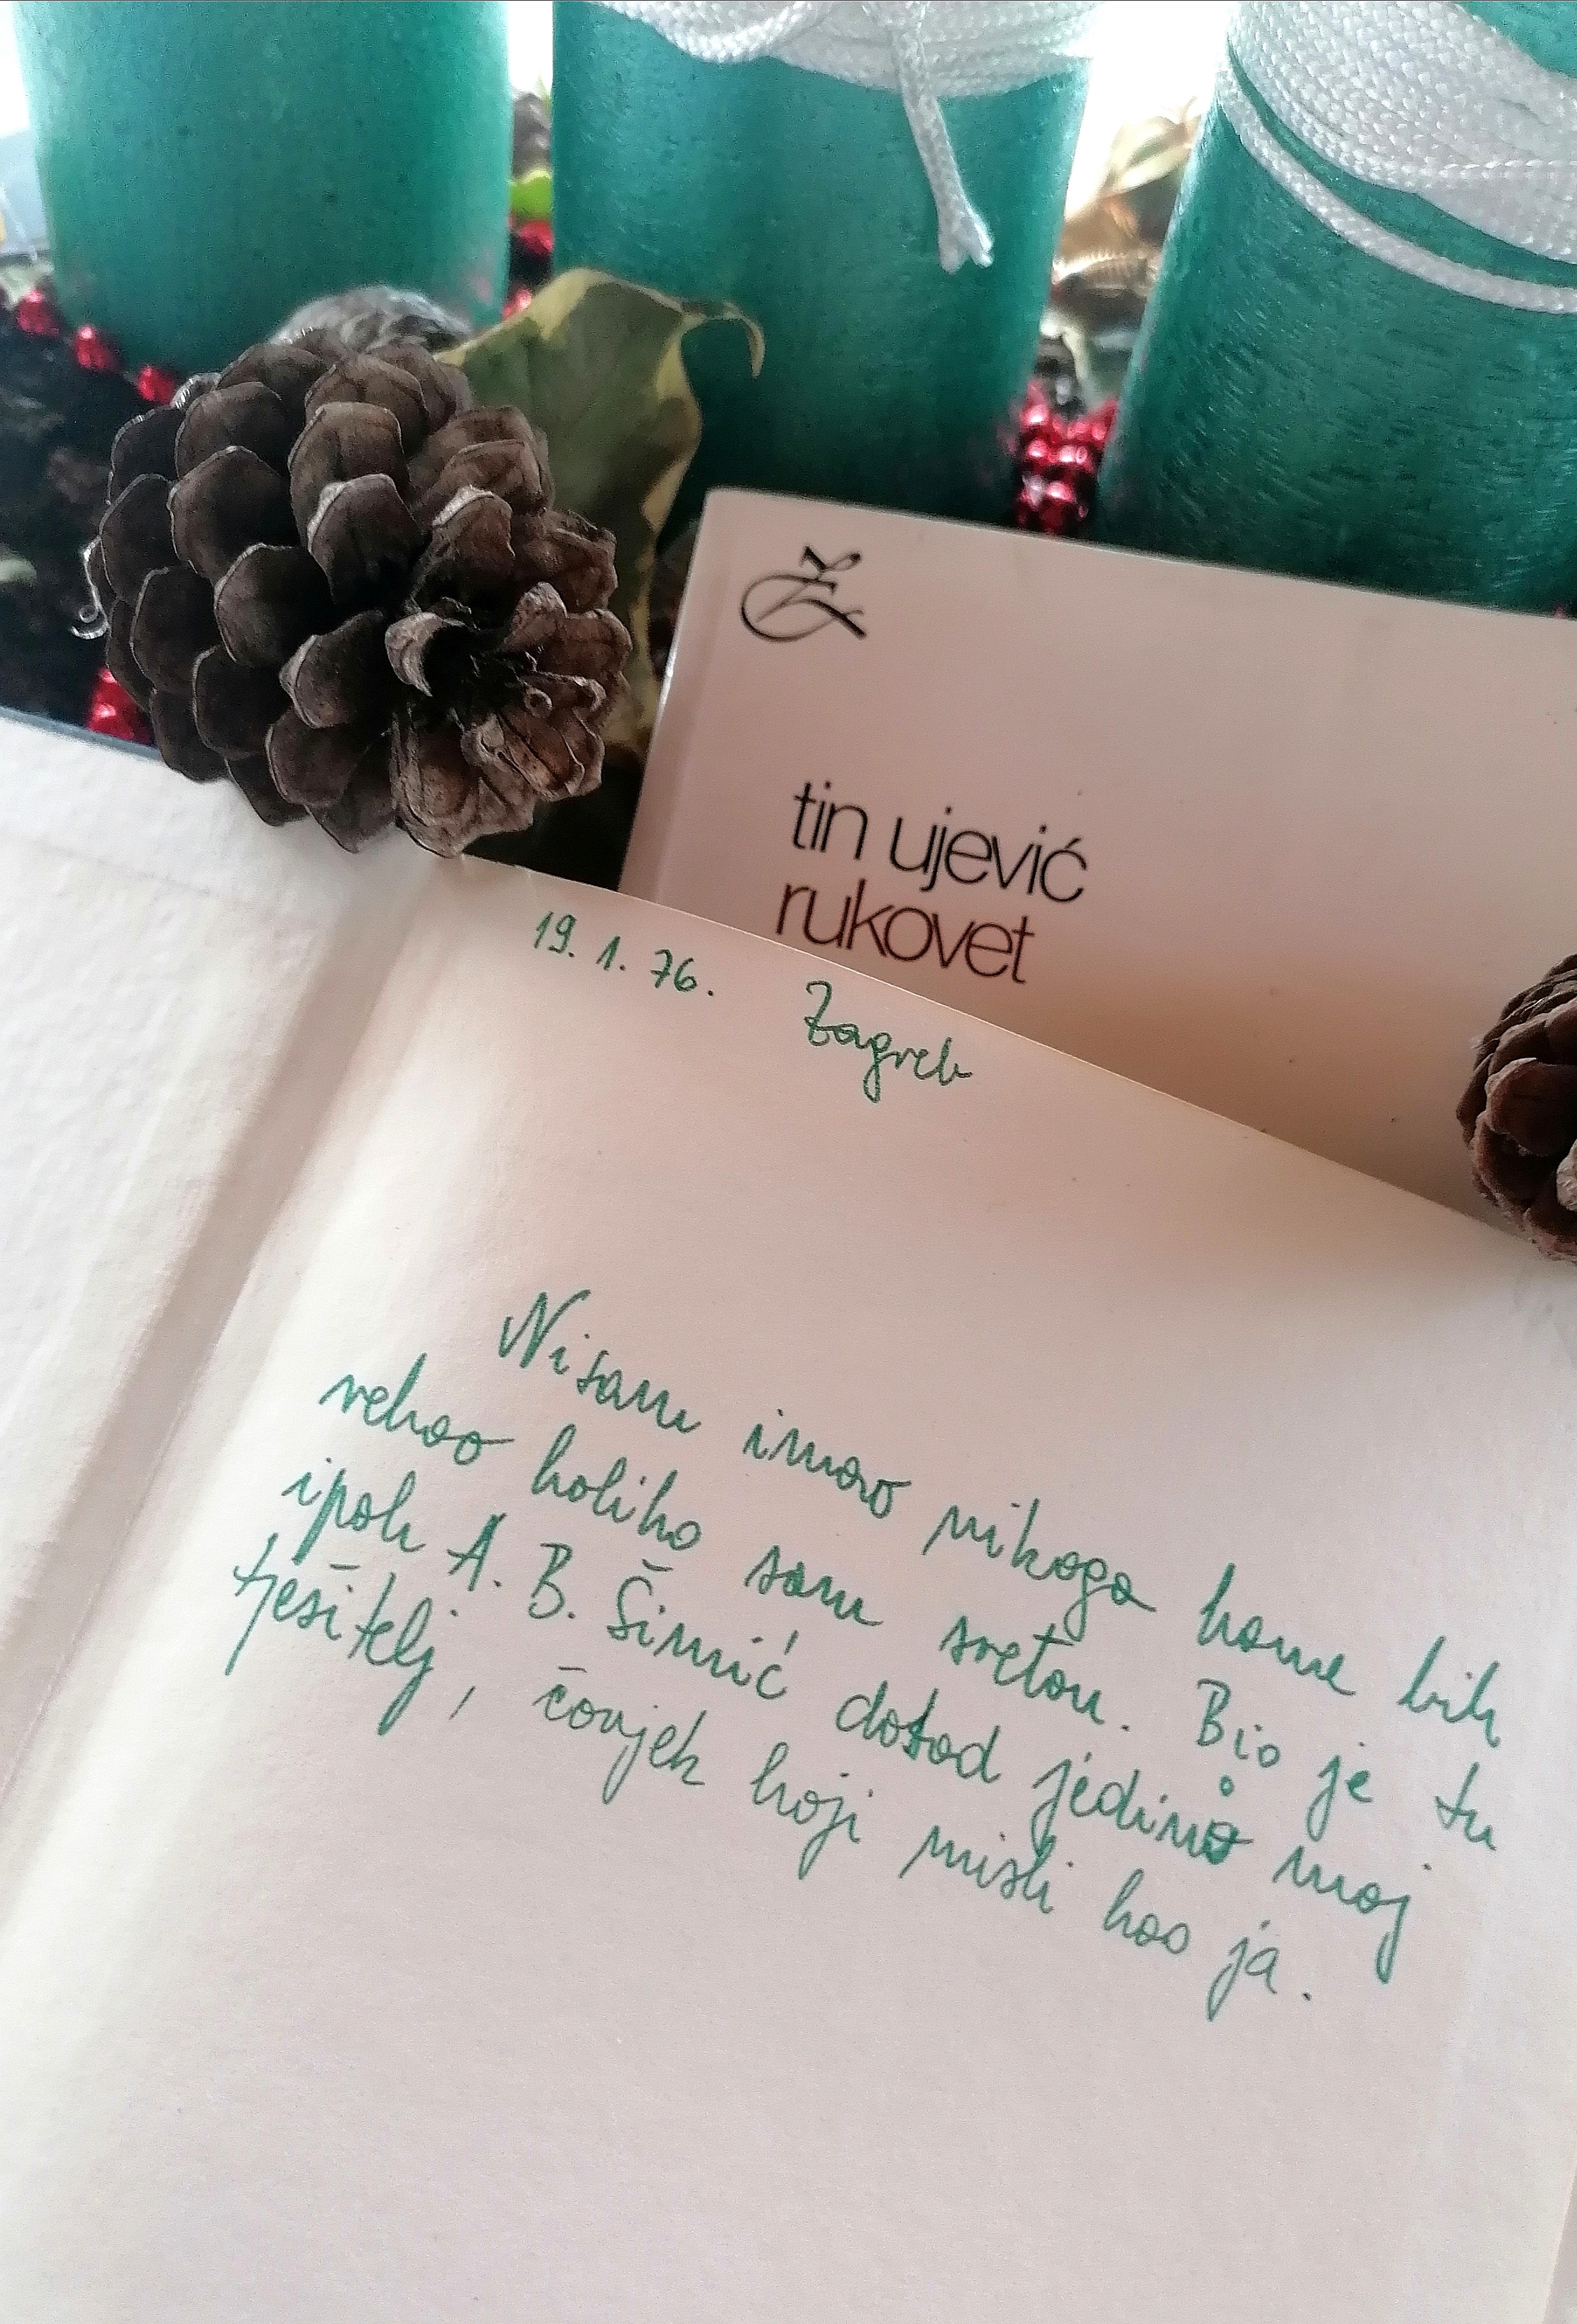 Ž
tin ujević
rukovet
19. 1. 76. Zagreb
Nisam imao nikoga kome bih
rekao koliko sam sretan. Bio je tu
ipak A. B. Šimić dotad jedino moj
tješitelj, čovjek koji misli kao ja.